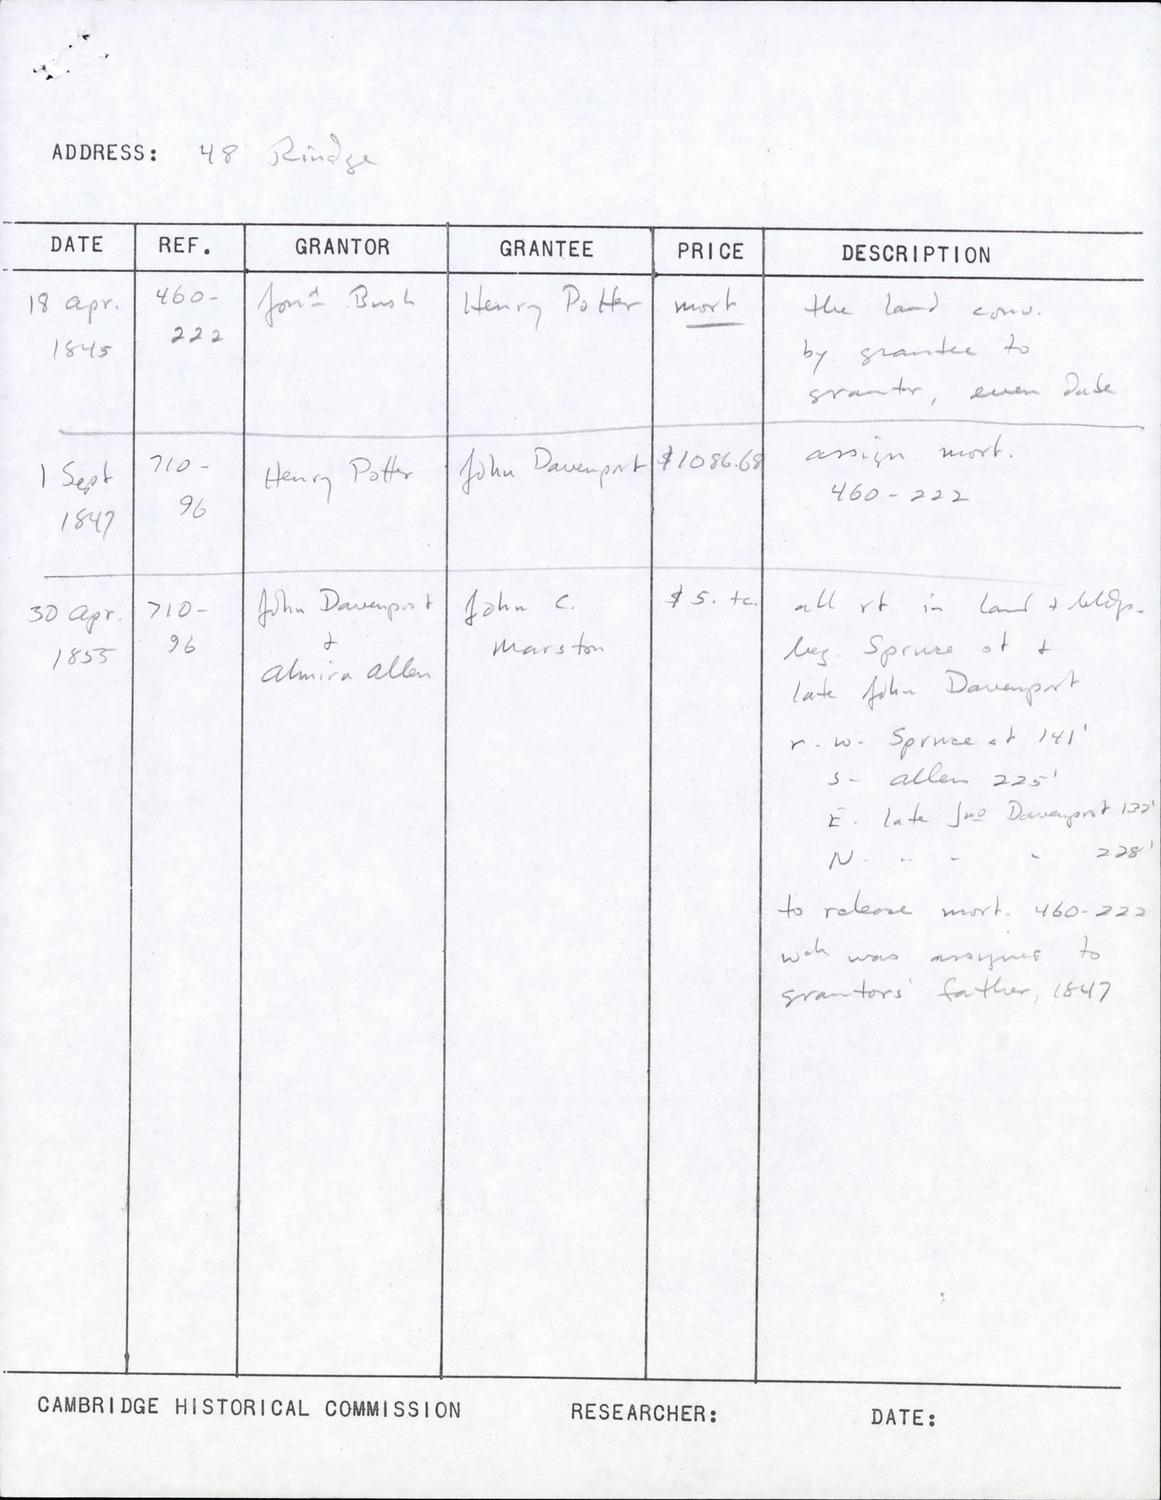 ADDRESS: 48 Rindge
DATE REF. GRANTOR GRANTEE PRICE DESCRIPTION
18 Apr. 460- Jonᵃ Bush Henry Potter mort the land conv.
1845 222 by grantee to
grantor, even date
1 Sept 710- Henry Potter John Davenport $1086.68 assign mort.
1847 96 460-222
30 Apr. 710- John Davenport John C. $5. tc. all rt in land + bldgs.
1855 96 + Marston beg. Spruce st +
Almira Allen late John Davenport
r. w. Spruce st 141'
S- Allen 225'
E. late Jno Davenport 132'
N. " " " 228'
to release mort. 460-222
wch was assigned to
grantors' father, 1847
CAMBRIDGE HISTORICAL COMMISSION RESEARCHER: DATE: